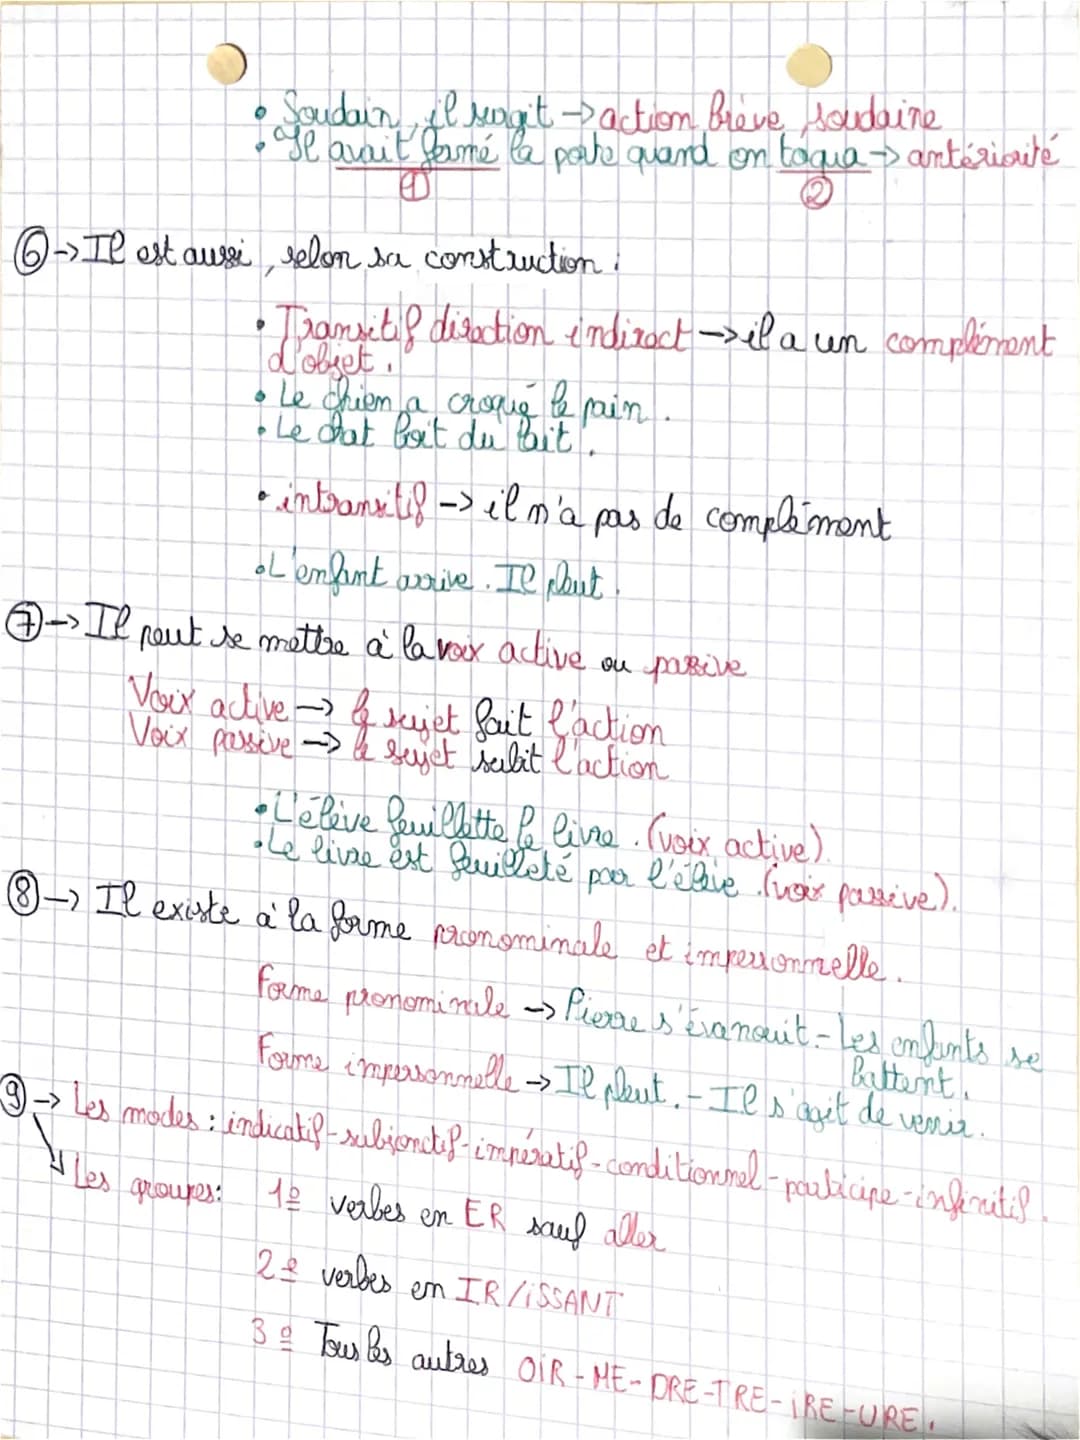 • Soudain, il surgit -> action brève, soudaine
• Il avait fermé la porte quand on toqua -> antériorité
① ②
⑥ -> Il est aussi, selon sa construction :
• Transitif direction indirect -> il a un complément
d'objet.
• Le chien a croqué le pain.
• Le chat boit du lait.
• intransitif -> il n'a pas de complément
• L'enfant arrive. Il pleut.
⑦ -> Il peut se mettre à la voix active ou passive
Voix active -> le sujet fait l'action
Voix passive -> le sujet subit l'action
• L'élève feuillette le livre. (voix active).
• Le livre est feuilleté par l'élève. (voix passive).
⑧ -> Il existe à la forme pronominale et impersonnelle.
Forme pronominale -> Pierre s'évanouit. - Les enfants se
battent.
Forme impersonnelle -> Il pleut. - Il s'agit de venir.
⑨ -> Les modes : indicatif - subjonctif - impératif - conditionnel - participe - infinitif.
Les groupes : 1º verbes en ER sauf aller
2º verbes en IR/iSSANT
3º Tous les autres OiR - ME - DRE - TRE - iRE - URE.